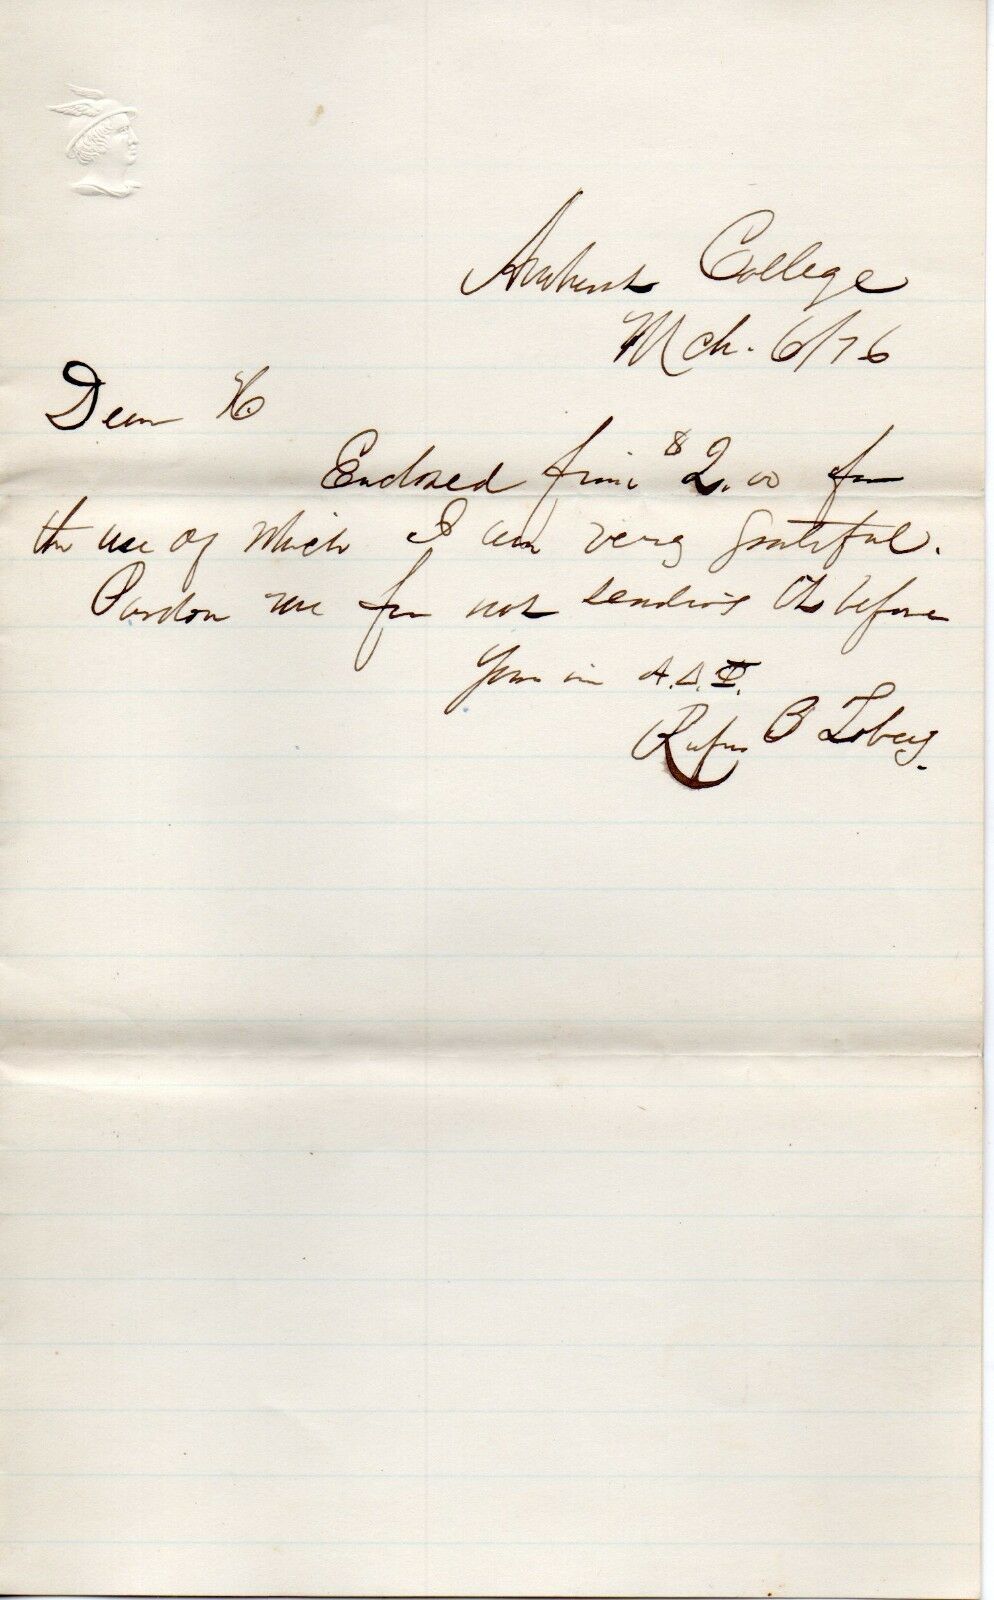 Amherst College
Mch. 6/76
Dear H.
Enclosed find $2.00 for
the use of which I am very grateful.
Pardon me for not sending it before
Yours in A.Δ.Φ.
Rufus B Tobey.